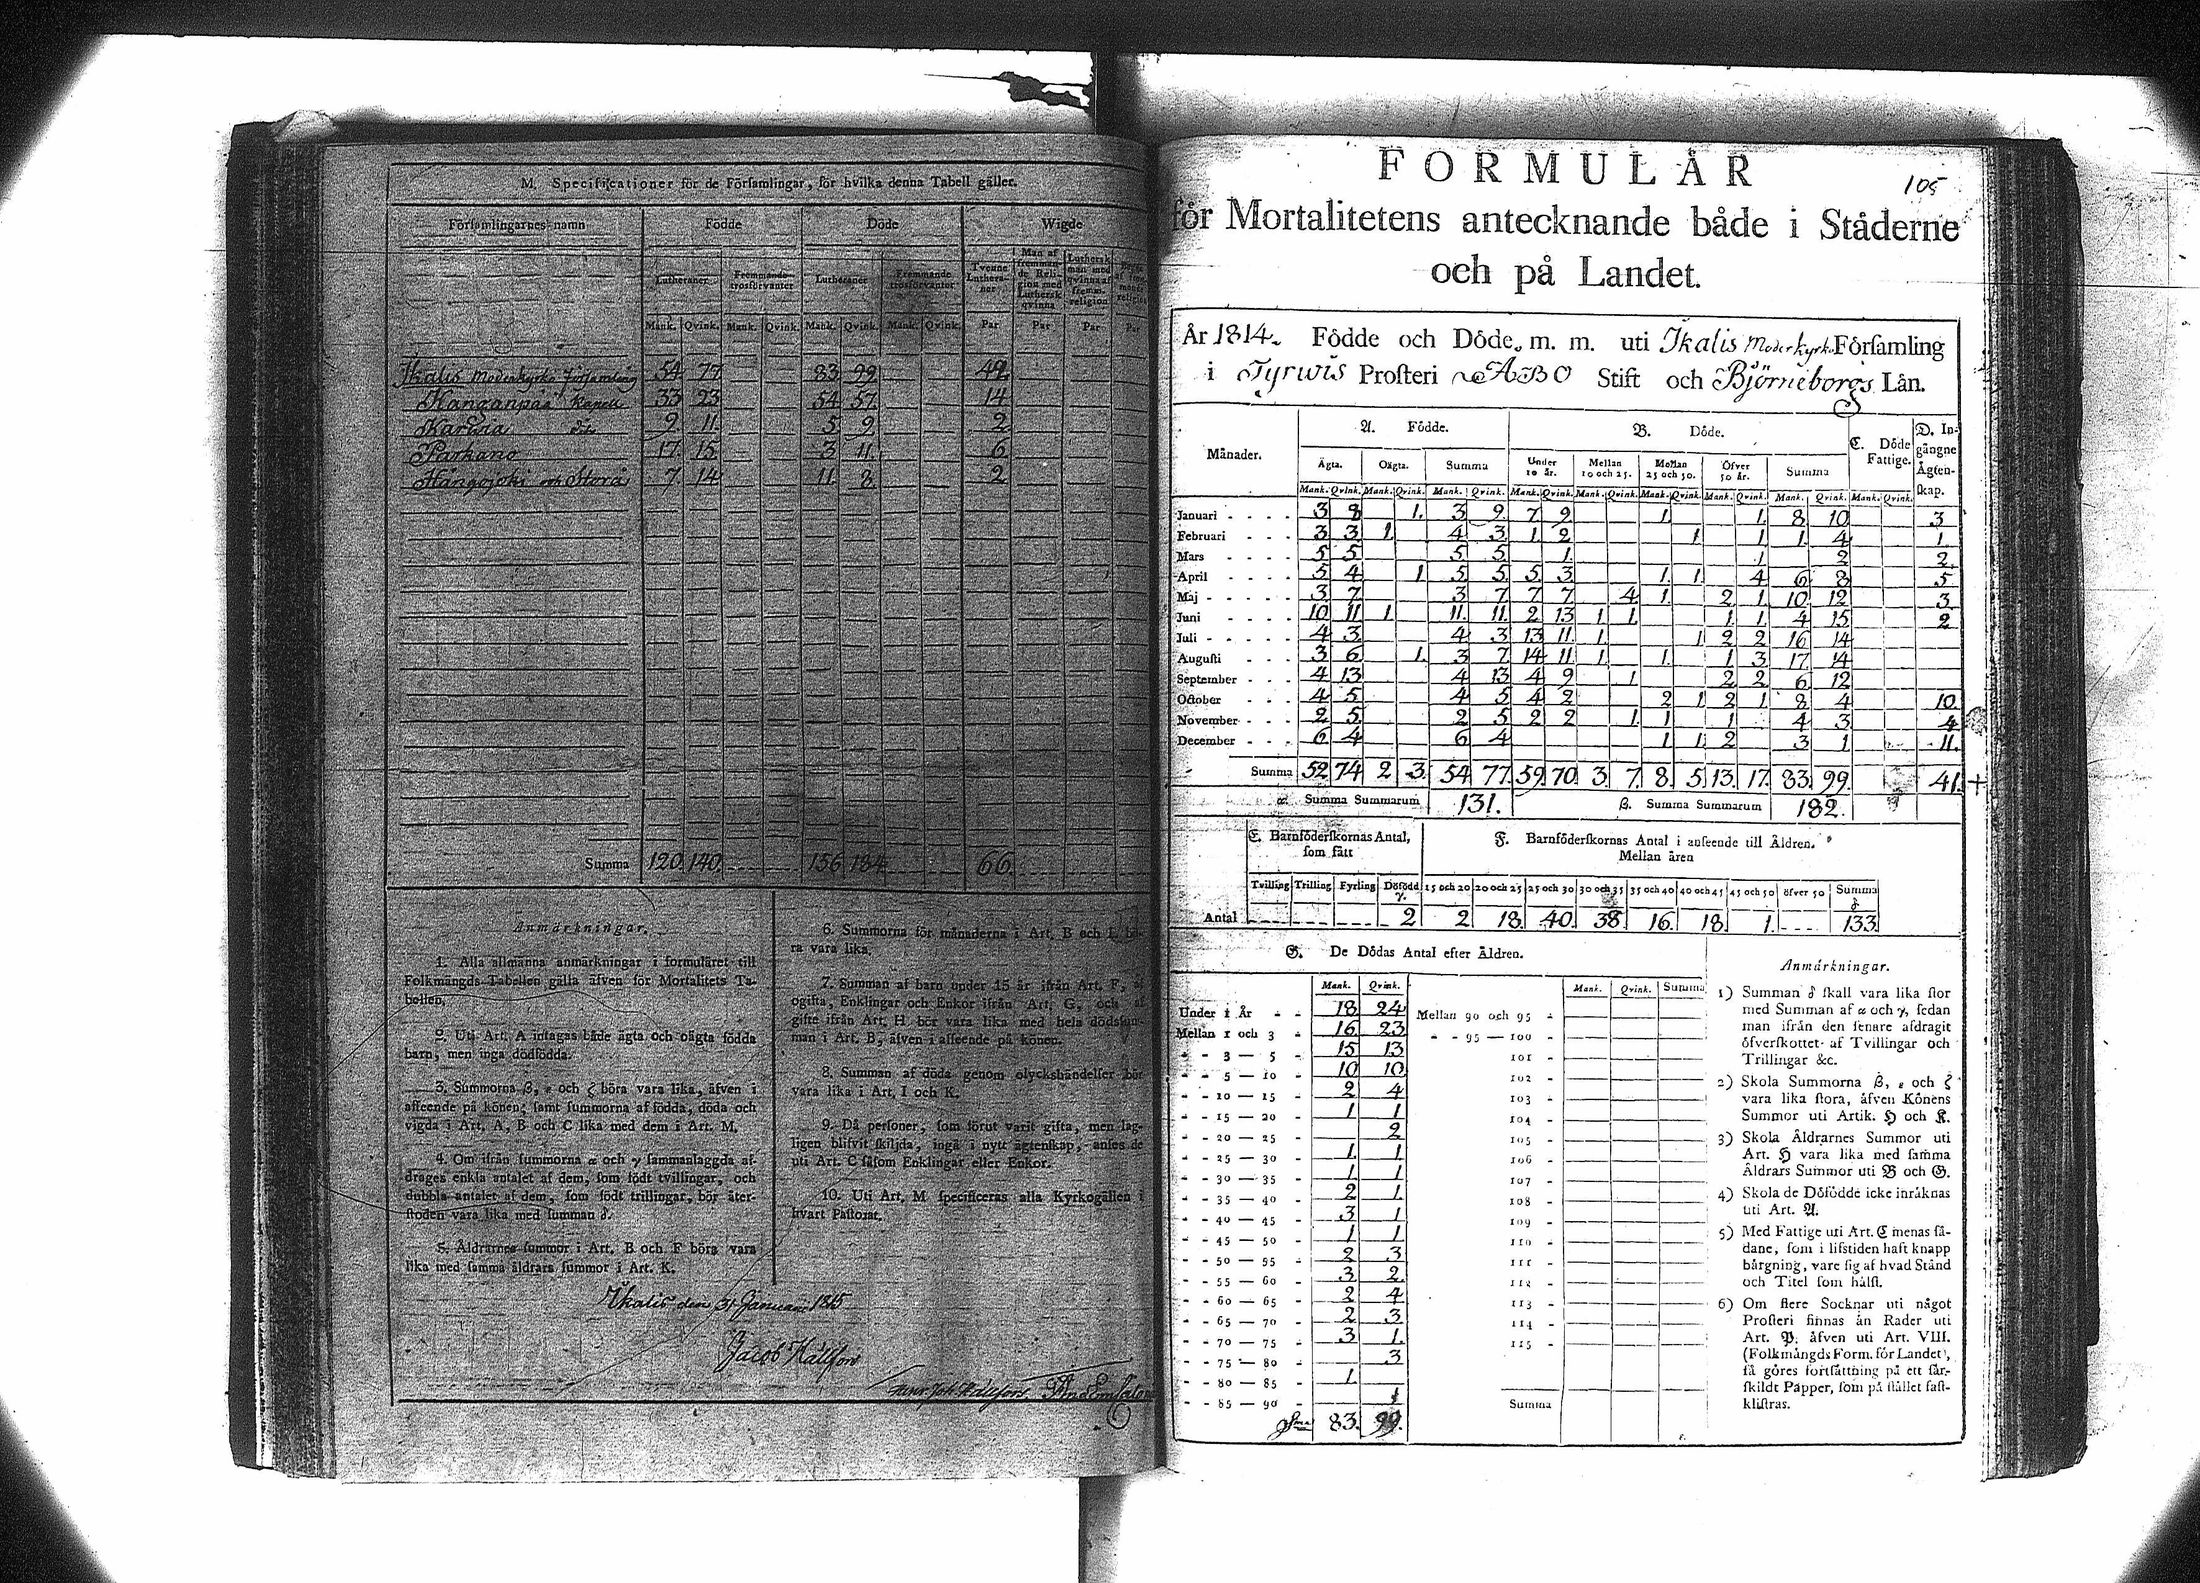 M. Specificationer för de Församlingar, för hvilka denna Tabell gäller.
Församlingarnes namn Födde Döde Wigde
Lutheraner Fremmande trosförvanter Lutheraner Fremmande trosförvanter Tvenne Lutheraner Man af fremmande Religion med Luthersk qvinna Luthersk man med qvinna af fremm. religion
Mank. Qvink. Mank. Qvink. Mank. Qvink. Mank. Qvink. Par Par Par Par
Ikalis Moderkyrko Församling 54 77 83 99 42
Kanganpää Kapell 33 23 54 57 14
Karvia dito 9 11 5 9 2
Parkano 17 15 3 11 6
Hångojoki och Storå 7 14 11 8 2
Summa 120 140 156 184 66
Anmärkningar.
1. Alla allmänna anmärkningar i formuläret till
Folkmängds-Tabellen gälla äfven för Mortalitets Ta-
bellen.
2. Uti Art. A intagas både ägta och oägta födda
barn, men inga dödfödda.
3. Summorna ß, ε och ζ böra vara lika, äfven i
afseende på könen; samt summorna af födda, döda och
vigda i Art. A, B och C lika med dem i Art. M.
4. Om ifrån summorna α och γ sammanlaggda af-
drages enkla antalet af dem, som födt tvillingar, och
dubbla antalet af dem, som födt trillingar, bör åter-
stoden vara lika med summan δ.
5. Åldrarnes summor i Art. B och F böra vara
lika med samma åldrars summor i Art. K.
6. Summorna för månaderna i Art. B och E bö-
ra vara lika.
7. Summan af barn under 15 år ifrån Art. F, af
ogifta, Enklingar och Enkor ifrån Art. G, och af
gifte ifrån Art. H bör vara lika med hela dödssum-
man i Art. B, äfven i afseende på könen.
8. Summan af döda genom olyckshändelser bör
vara lika i Art. I och K.
9. Då personer, som förut varit gifta, men lag-
ligen blifvit skiljda, ingå i nytt ägtenskap, anses de
uti Art. C såsom Enklingar eller Enkor.
10. Uti Art. M specificeras alla Kyrkogällen i
hvart Pastorat.
Ikalis den 31 Januari 1815
Jacob Hällfors
FORMULÄR
105
för Mortalitetens antecknande både i Städerne
och på Landet.
År 1814. Födde och Döde, m. m. uti Ikalis Moderkyrk. Församling
i Tyrwis Prosteri ABO Stift och Björneborgs Län.
Månader. A. Födde. B. Döde. C. Döde Fattige. D. Ingångne Ägtenskap.
Ägta. Oägta. Summa Under 10 år. Mellan 10 och 25. Mellan 25 och 50. Öfver 50 år. Summa
Mank. Qvink. Mank. Qvink. Mank. Qvink. Mank. Qvink. Mank. Qvink. Mank. Qvink. Mank. Qvink. Mank. Qvink. Mank. Qvink.
Januari 3 8 1. 3 9 7 9 1. 1. 8 10 3
Februari 3 3 1 4 3 1 2 1 1 1 4 1
Mars 5 5 5 5 1 1 2 2
April 5 4 1 5 5 5 3 1 1 4 6 8 5
Maj 3 7 3 7 7 7 4 1 2 1 10 12 3
Juni 10 11 1 11 11 2 13 1 1 1 1 4 15 2
Juli 4 3 4 3 13 11 1 1 2 2 16 14
Augusti 3 6 1. 3 7 14 11 1 1 1 3 17 14
September 4 13 4 13 4 9 1 2 2 6 12
October 4 5 4 5 4 2 2 1 2 1 8 4 10
November 2 5 2 5 2 2 1 1 1 4 3 4
December 6 4 6 4 1 1 2 3 1 11
Summa 52 74 2 3 54 77 59 70 3 7 8 5 13 17 83 99 41 +
α Summa Summarum 131. ß. Summa Summarum 182.
E. Barnföderskornas Antal, som fått F. Barnföderskornas Antal i anseende till Åldren.
Mellan åren
Tvilling Trilling Fyrling Döfödd γ. 15 och 20 20 och 25 25 och 30 30 och 35 35 och 40 40 och 45 45 och 50 öfver 50 Summa δ
Antal 2 2 18 40 38 16 18 1 133
G. De Dödas Antal efter Åldren.
Mank. Qvink. Mank. Qvink. Summa
Under 1 År 18 24 Mellan 90 och 95
Mellan 1 och 3 16 23 95 — 100
3 — 5 15 13 101
5 — 10 10 10 102
10 — 15 2 4 103
15 — 20 1 1 104
20 — 25 2 105
25 — 30 1 1 106
30 — 35 1 1 107
35 — 40 2 1 108
40 — 45 3 1 109
45 — 50 1 1 110
50 — 55 2 3 111
55 — 60 3 2 112
60 — 65 2 4 113
65 — 70 2 3 114
70 — 75 3 1 115
75 — 80 3
80 — 85 1
85 — 90 1 Summa
Sma 83. 99.
Anmärkningar.
1) Summan δ skall vara lika stor
med Summan af α och γ, sedan
man ifrån den senare afdragit
öfverskottet af Tvillingar och
Trillingar &c.
2) Skola Summorna ß, ε och ζ
vara lika stora, äfven Könens
Summor uti Artik. H och K.
3) Skola Åldrarnes Summor uti
Art. H vara lika med samma
Åldrars Summor uti B och G.
4) Skola de Döfödde icke inräknas
uti Art. A.
5) Med Fattige uti Art. C menas så-
dane, som i lifstiden haft knapp
bärgning, vare sig af hvad Stånd
och Titel som hälst.
6) Om flere Socknar uti något
Prosteri finnas än Rader uti
Art. P. äfven uti Art. VIII.
(Folkmängds Form. för Landet),
så göres fortsättning på ett sär-
skildt Papper, som på stället fast-
klistras.